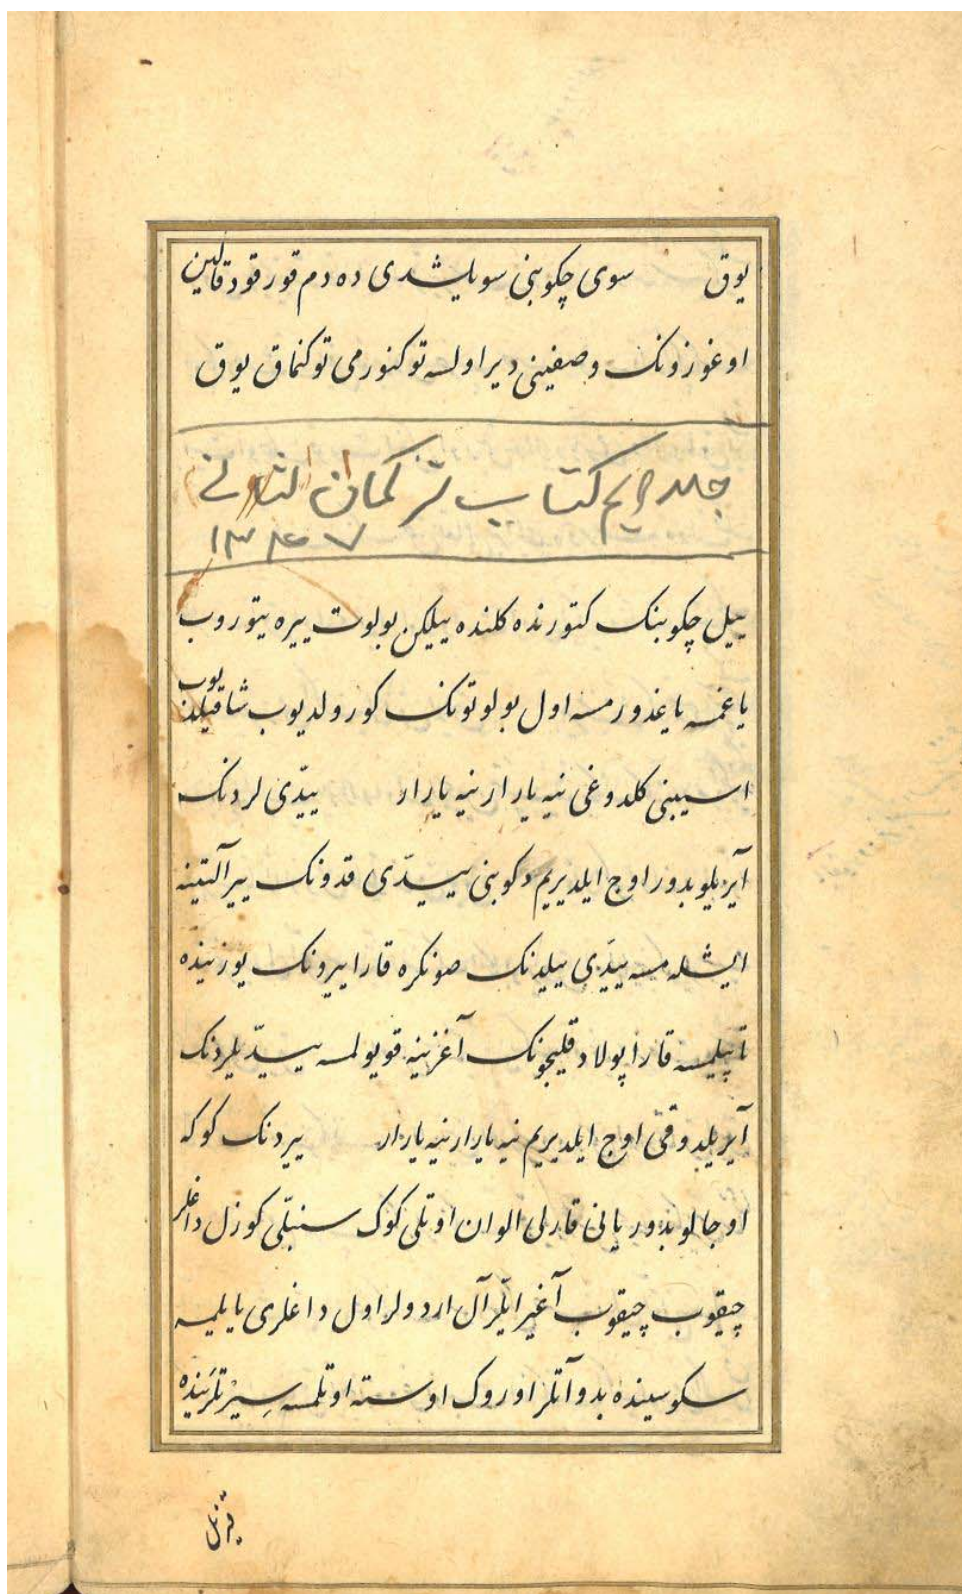 یوق سوی چکوبنی سویلشدی ده دم قورقود قالین
اوغوزونک وصفینی دیر اولسه توکنورمی توکنماق یوق
جلد کتاب ترکمان
۱۳۴۷
ییل چکوبنک کتورنده کلنده ییلکن بولوت ییره یتوروب
یاغمه یاغدورمسه اول بولوتونک کورولدیوب شاقیلدیوب
اسیبنی کلدوغی نیه یارار نیه یارار ییدّی لردنک
آیریلوبدور اوج ایلدیریم دکوبنی ییدّی قدونک ییر آلتینه
ایشله مسه ییدّی ییلیدنک صونکره قارا ییرونک یوزینده
تاپیلمسه قارا پولاد قلیجونک آغزینه قویولمسه ییدّیلردنک
آیریلدوقی اوج ایلدیریم نیه یارار نیه یارار ییردنک کوکه
اوجالوبدور یانی قارلی الوان اوتلی کوک سنبلّی کوزل داغلر
چیقوب چیقوب آغیر ایلّر آل اردولر اول داغلری یایلیه
سکوسینده بدو آتلر اوروک اوسته اوتلمسه سیرتلرینده
قزل